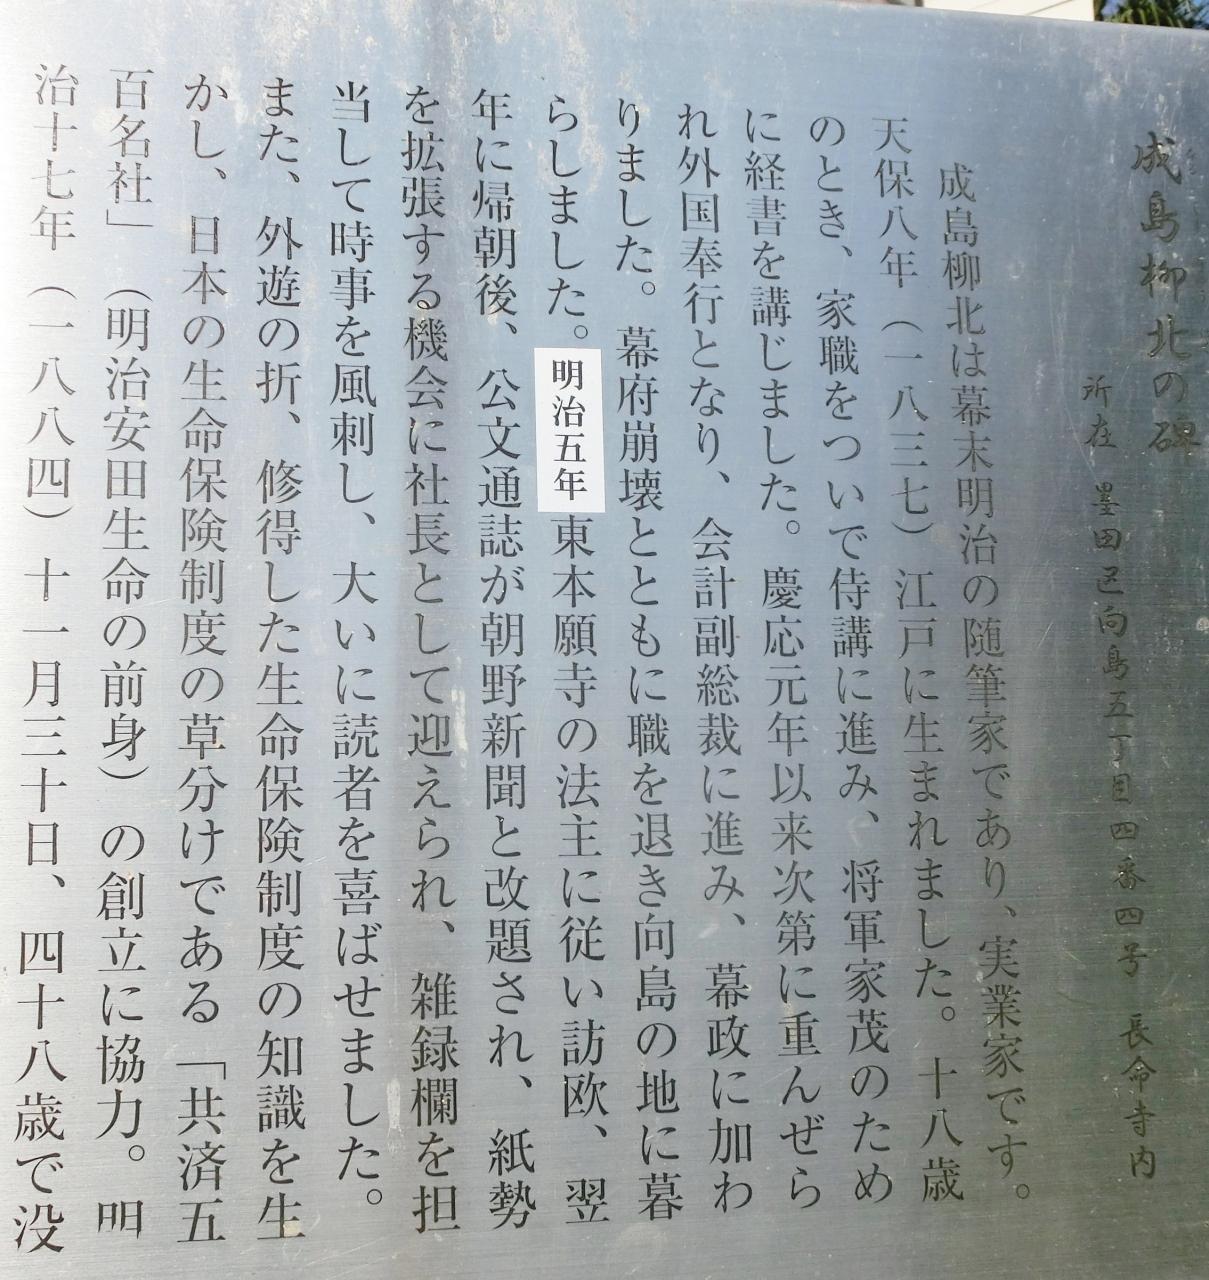 成島柳北の碑
所在 墨田区向島五丁目四番四号 長命寺内
成島柳北は幕末明治の随筆家であり、実業家です。
天保八年（一八三七）江戸に生まれました。十八歳
のとき、家職をついで侍講に進み、将軍家茂のため
に経書を講じました。慶応元年以来次第に重んぜら
れ外国奉行となり、会計副総裁に進み、幕政に加わ
りました。幕府崩壊とともに職を退き向島の地に暮
らしました。明治五年東本願寺の法主に従い訪欧、翌
年に帰朝後、公文通誌が朝野新聞と改題され、紙勢
を拡張する機会に社長として迎えられ、雑録欄を担
当して時事を風刺し、大いに読者を喜ばせました。
また、外遊の折、修得した生命保険制度の知識を生
かし、日本の生命保険制度の草分けである「共済五
百名社」（明治安田生命の前身）の創立に協力。明
治十七年（一八八四）十一月三十日、四十八歳で没